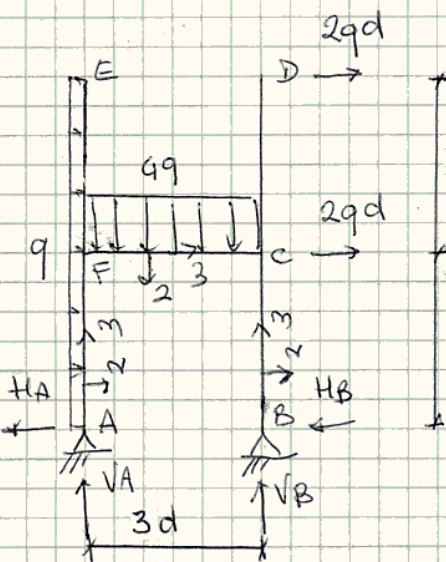 2qd
E
D
4q
2qd
q
F
2
3
C
3
2
3
2
HA
A
B
HB
VA
VB
3d